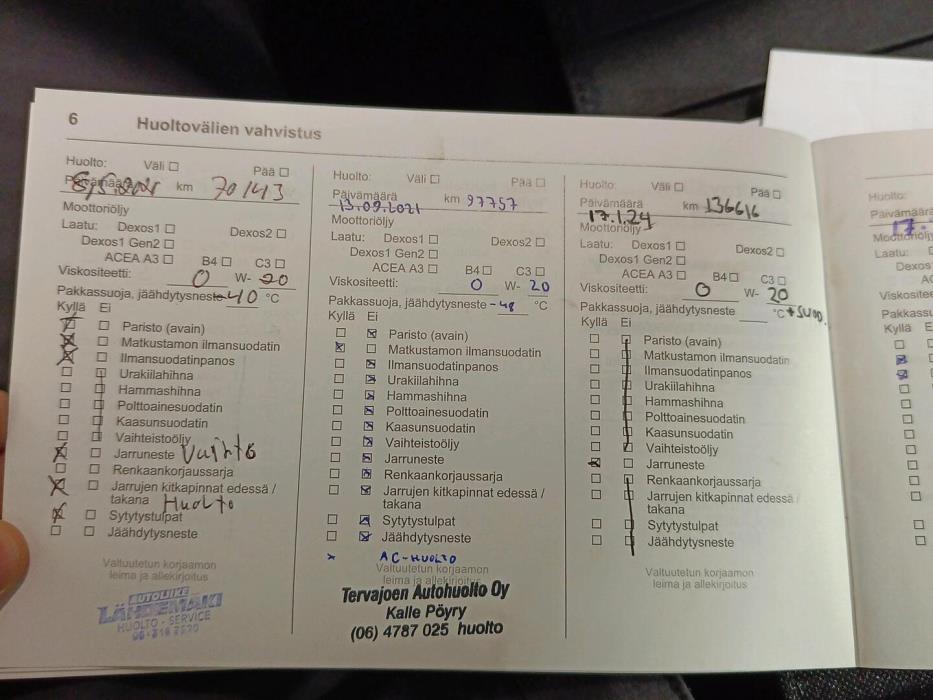 6
Huoltovälien vahvistus
Huolto: Väli Pää
Päivämäärä km 70143
Moottoriöljy
Laatu: Dexos1 Dexos2
Dexos1 Gen2
ACEA A3 B4 C3
Viskositeetti: 0 W- 20
Pakkassuoja, jäähdytysneste -40 °C
Kyllä Ei
Paristo (avain)
Matkustamon ilmansuodatin
Ilmansuodatinpanos
Urakiilahihna
Hammashihna
Polttoainesuodatin
Kaasunsuodatin
Vaihteistoöljy
Jarruneste Vaihto
Renkaankorjaussarja
Jarrujen kitkapinnat edessä /
takana Huolto
Sytytystulpat
Jäähdytysneste
Valtuutetun korjaamon
leima ja allekirjoitus
AUTOLIIKE
LÄHDEMÄKI
HUOLTO - SERVICE
Huolto: Väli Pää
Päivämäärä km 97757
13.09.2021
Moottoriöljy
Laatu: Dexos1 Dexos2
Dexos1 Gen2
ACEA A3 B4 C3
Viskositeetti: 0 W- 20
Pakkassuoja, jäähdytysneste -48 °C
Kyllä Ei
Paristo (avain)
Matkustamon ilmansuodatin
Ilmansuodatinpanos
Urakiilahihna
Hammashihna
Polttoainesuodatin
Kaasunsuodatin
Vaihteistoöljy
Jarruneste
Renkaankorjaussarja
Jarrujen kitkapinnat edessä /
takana
Sytytystulpat
Jäähdytysneste
x AC-HUOLTO
Valtuutetun korjaamon
leima ja allekirjoitus
Tervajoen Autohuolto Oy
Kalle Pöyry
(06) 4787 025 huolto
Huolto: Väli Pää
Päivämäärä km 136616
17.1.24
Moottoriöljy
Laatu: Dexos1 Dexos2
Dexos1 Gen2
ACEA A3 B4 C3
Viskositeetti: 0 W- 20
Pakkassuoja, jäähdytysneste °C
Kyllä Ei
Paristo (avain)
Matkustamon ilmansuodatin
Ilmansuodatinpanos
Urakiilahihna
Hammashihna
Polttoainesuodatin
Kaasunsuodatin
Vaihteistoöljy
Jarruneste
Renkaankorjaussarja
Jarrujen kitkapinnat edessä /
takana
Sytytystulpat
Jäähdytysneste
Valtuutetun korjaamon
leima ja allekirjoitus
Huolto:
Päivämäärä
17.
Laatu:
Kyllä E